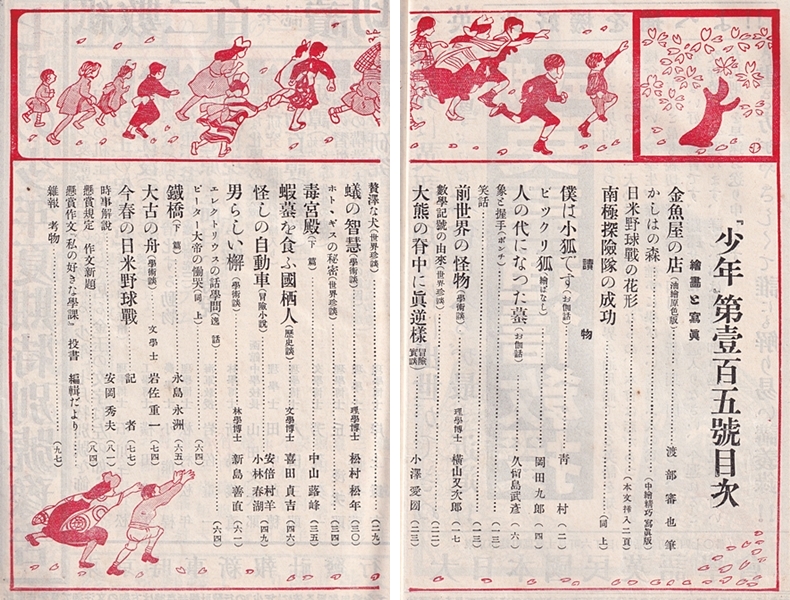 『少年』第壹百五號目次
繪畫と寫眞
金魚屋の店(油繪原色版)……渡部審也筆
かしはの森……(中繪精巧寫眞版)
日米野球戰の花形……(本文挿入二頁)
南極探險隊の成功……(同上)
讀物
僕は小狐です(お伽話)……靑村(二)
ビックリ狐(繪ばなし)……岡田九郎(四)
人の代になった蟇(お伽話)……久留島武彥(六)
象と握手(ポンチ)……(一三)
笑話……(一三)
前世界の怪物(學術談)……理學博士 橫山又次郎(一七)
數學記號の由來(世界珍談)……(二二)
大熊の脊中に眞逆樣(冒險實談)……小澤愛圀(二三)
贅澤な犬(世界珍談)……(二九)
蟻の智慧(學術談)……理學博士 松村松年(三〇)
ホトヽギスの秘密(世界珍談)……(三四)
毒宮殿(下篇)……中山蕗峰(三五)
蝦蟇を食ふ國栖人(歷史談)……文學士 喜田貞吉(四六)
怪しの自動車(冒險小說)……安倍村羊 小林春湖(四九)
男らしい檞(學術談)……林學博士 新島善直(六一)
エレクトリウスの話學問(逸話)……(六四)
ピーター大帝の慟哭(同上)……(六四)
鐵橋(下篇)……永島永洲(六五)
大古の舟(學術談)……文學士 岩佐重一(七四)
今春の日米野球戰……記者(七七)
時事解說……安岡秀夫(八一)
懸賞規定 作文新題……(八四)
懸賞作文『私の好きな學課』 投書 編輯だより……
雜報 考物……(九七)